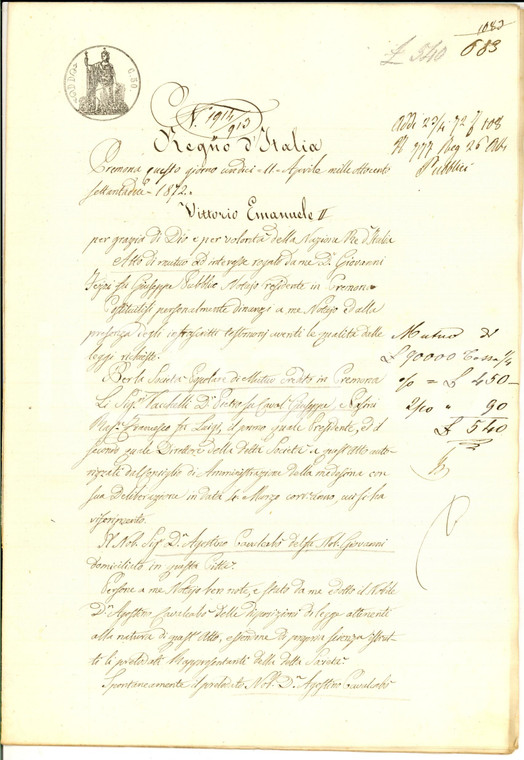 1082
£ 540 683
N. 1914/913
Addì 23/4 72 f 108
N 777 Reg 26 Atti
Pubblici
Regno d'Italia
Cremona questo giorno undici - 11 - Aprile mille ottocento
settantadue - 1872.
Vittorio Emanuele II
per grazia di Dio e per volontà della Nazione Re d'Italia
Atto di mutuo ad interesse rogato da me Dr. Giovanni
fu Giuseppe Pubblico Notajo residente in Cremona
Costituitisi personalmente dinanzi a me Notajo dalla
presenza degli infrascritti testimonj aventi le qualità dalle
leggi richieste.
Mutuo di
£ 90000 Tassa
% = £ 450 -
2/10 " 90
£ 540
Per la Società di Mutuo Credito in Cremona
Li Sig.ri Vacchelli Dr. Pietro fu Giuseppe, e
Rag. Francesco fu Luigi, il primo quale Presidente, ed il
secondo quale Direttore della detta Società a quest'atto auto-
rizzati dal Consiglio di Amministrazione della medesima con
sua Deliberazione in data Marzo corr. anno, cui si ha
riferimento.
Il Nob. Sig. Dr. Agostino Cavalcabò del fu Nob. Giovanni
domiciliato in questa Città.
Persone a me Notajo ben note, e stato da me edotto il Nobile
Dr. Agostino Cavalcabò delle disposizioni di legge attenenti
alla natura di quest'Atto, essendone di propria scienza
li prelodati Rappresentanti della detta Società.
Spontaneamente il prelodato Nob. Dr. Agostino Cavalcabò